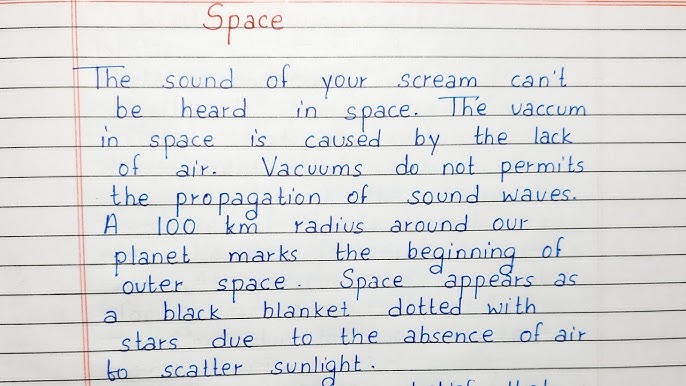 Space
The sound of your scream can't
be heard in space. The vaccum
in space is caused by the lack
of air. Vacuums do not permits
the propagation of sound waves.
A 100 km radius around our
planet marks the beginning of
outer space. Space appears as
a black blanket dotted with
stars due to the absence of air
to scatter sunlight.